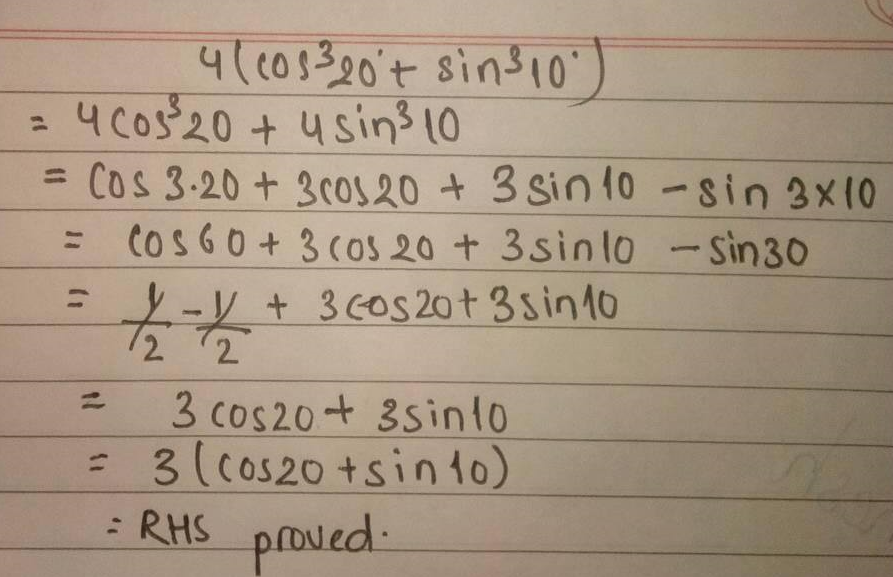 4(cos³20° + sin³10°)
= 4cos³20 + 4sin³10
= Cos 3·20 + 3cos20 + 3sin10 - sin 3×10
= cos60 + 3cos20 + 3sin10 - sin30
= 1/2 - 1/2 + 3cos20 + 3sin10
= 3cos20 + 3sin10
= 3(cos20 + sin10)
= RHS proved.